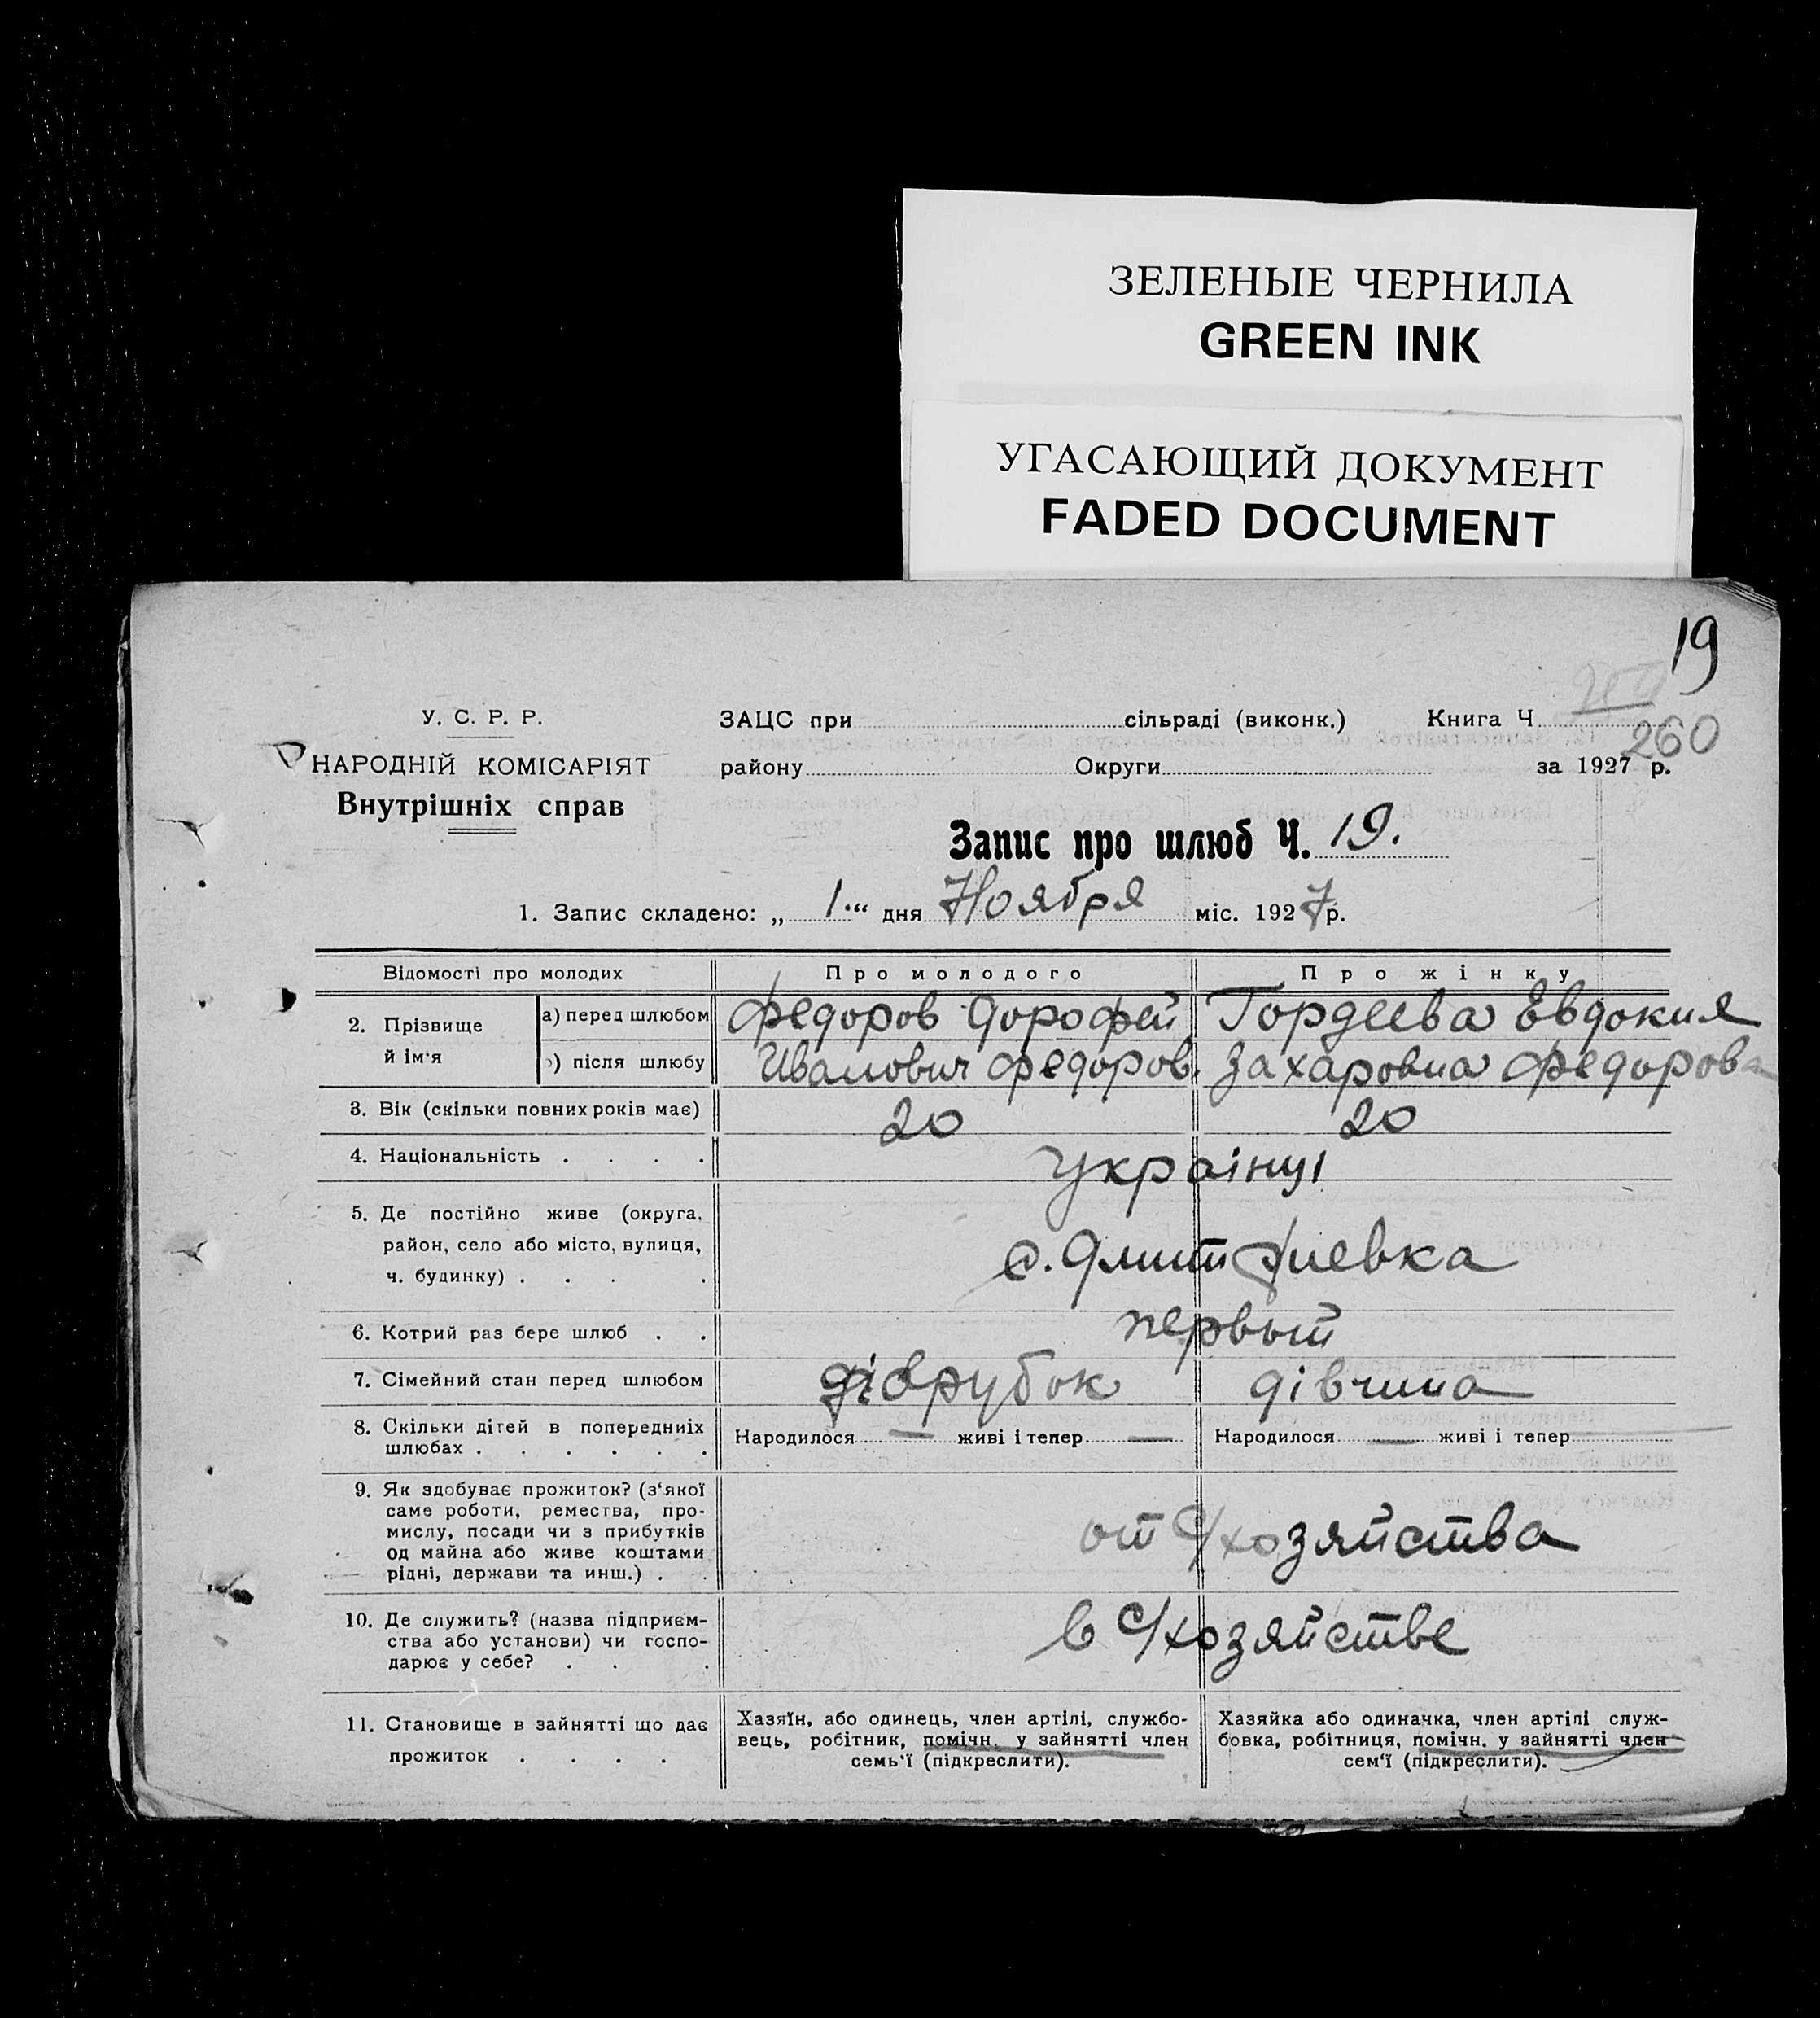 ЗЕЛЕНЫЕ ЧЕРНИЛА
GREEN INK
УГАСАЮЩИЙ ДОКУМЕНТ
FADED DOCUMENT
19
260
У. С. Р. Р.
НАРОДНІЙ КОМІСАРІЯТ
Внутрішніх справ
ЗАЦС при сільраді (виконк.) Книга Ч.
району Округи за 1927 р.
Запис про шлюб Ч. 19.
1. Запис складено: „ 1. “ дня Ноября міс. 1927 р.
Відомості про молодих Про молодого Про жінку
2. Прізвище й ім‘я
а) перед шлюбом Федоров Дорофей Гордеева Евдокия
б) після шлюбу Иванович Федоров. Захаровна Федорова
3. Вік (скільки повних років має) 20 20
4. Національність . . . . українці
5. Де постійно живе (округа,
район, село або місто, вулиця,
ч. будинку) . . . .
с. Дмитриевка
6. Котрий раз бере шлюб . . первый
7. Сімейний стан перед шлюбом парубок дівчина
8. Скільки дітей в попередниіх
шлюбах . . . . . .
Народилося — живі і тепер — Народилося — живі і тепер
9. Як здобуває прожиток? (з‘якої
саме роботи, ремества, про-
мислу, посади чи з прибутків
од майна або живе коштами
рідні, держави та инш.) . .
от с/хозяйства
10. Де служить? (назва підприєм-
ства або установи) чи госпо-
дарює у себе? . . .
в с/хозяйстве
11. Становище в зайнятті що дає
прожиток . . . .
Хазяїн, або одинець, член артілі, службо-
вець, робітник, помічн. у зайнятті член
семь‘ї (підкреслити).
Хазяйка або одиначка, член артілі служ-
бовка, робітниця, помічн. у зайнятті член
сем‘ї (підкреслити).